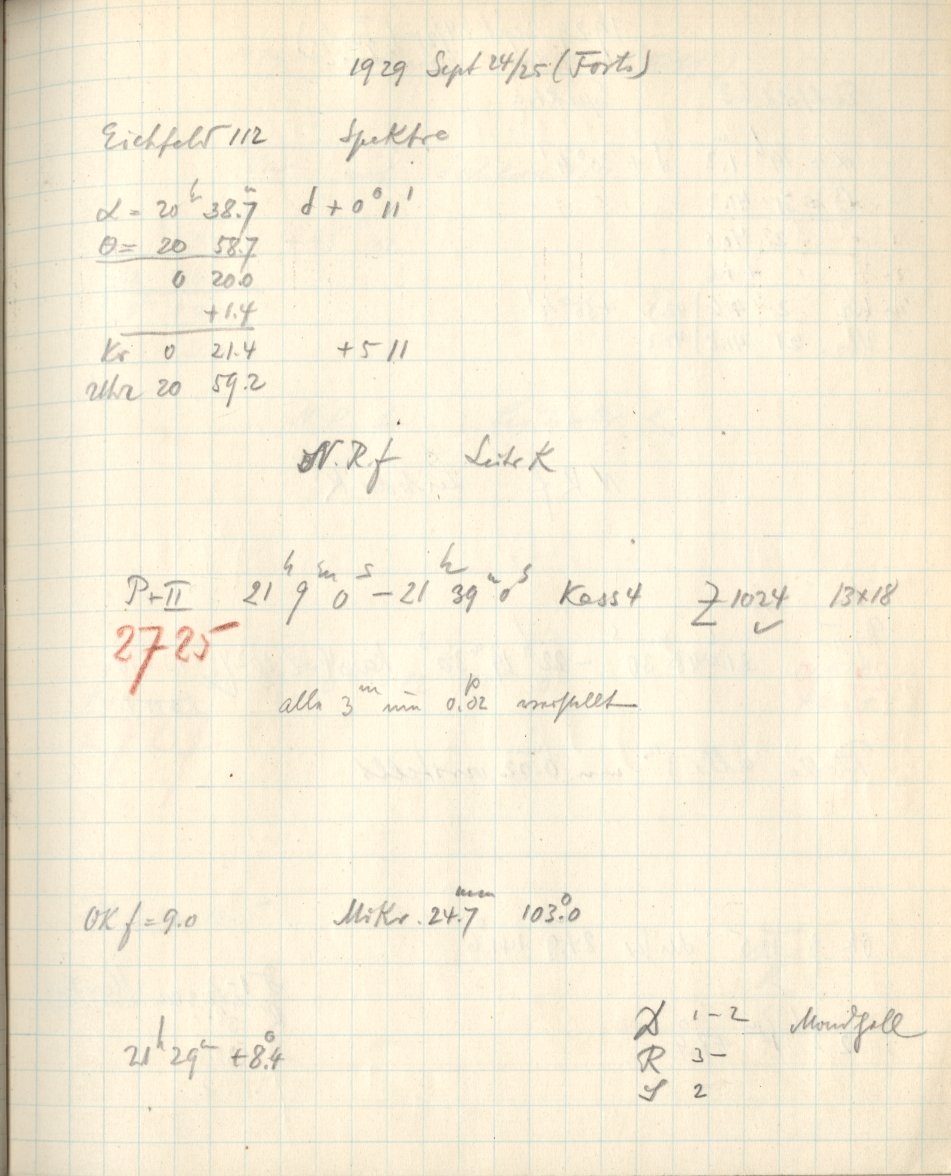 1929 Sept 24/25 (Forts)
Eichfeld 112 Spektra
α = 20h 38.m7 d + 0° 11'
θ = 20 58.7
0 20.0
+1.4
Kr 0 21.4 +5 11
Uhr 20 59.2
N. R. f Leitr K
P+II 21h 9m 0s – 21h 39m 0s Kass 4 Z 1024 13×18
2725
alle 3m um 0.p02 verstellt
OK f = 9.0 Mikr. 24.7mm 103.°0
21h 29m +8.°4
D 1-2 Mondhell
R 3-
S 2